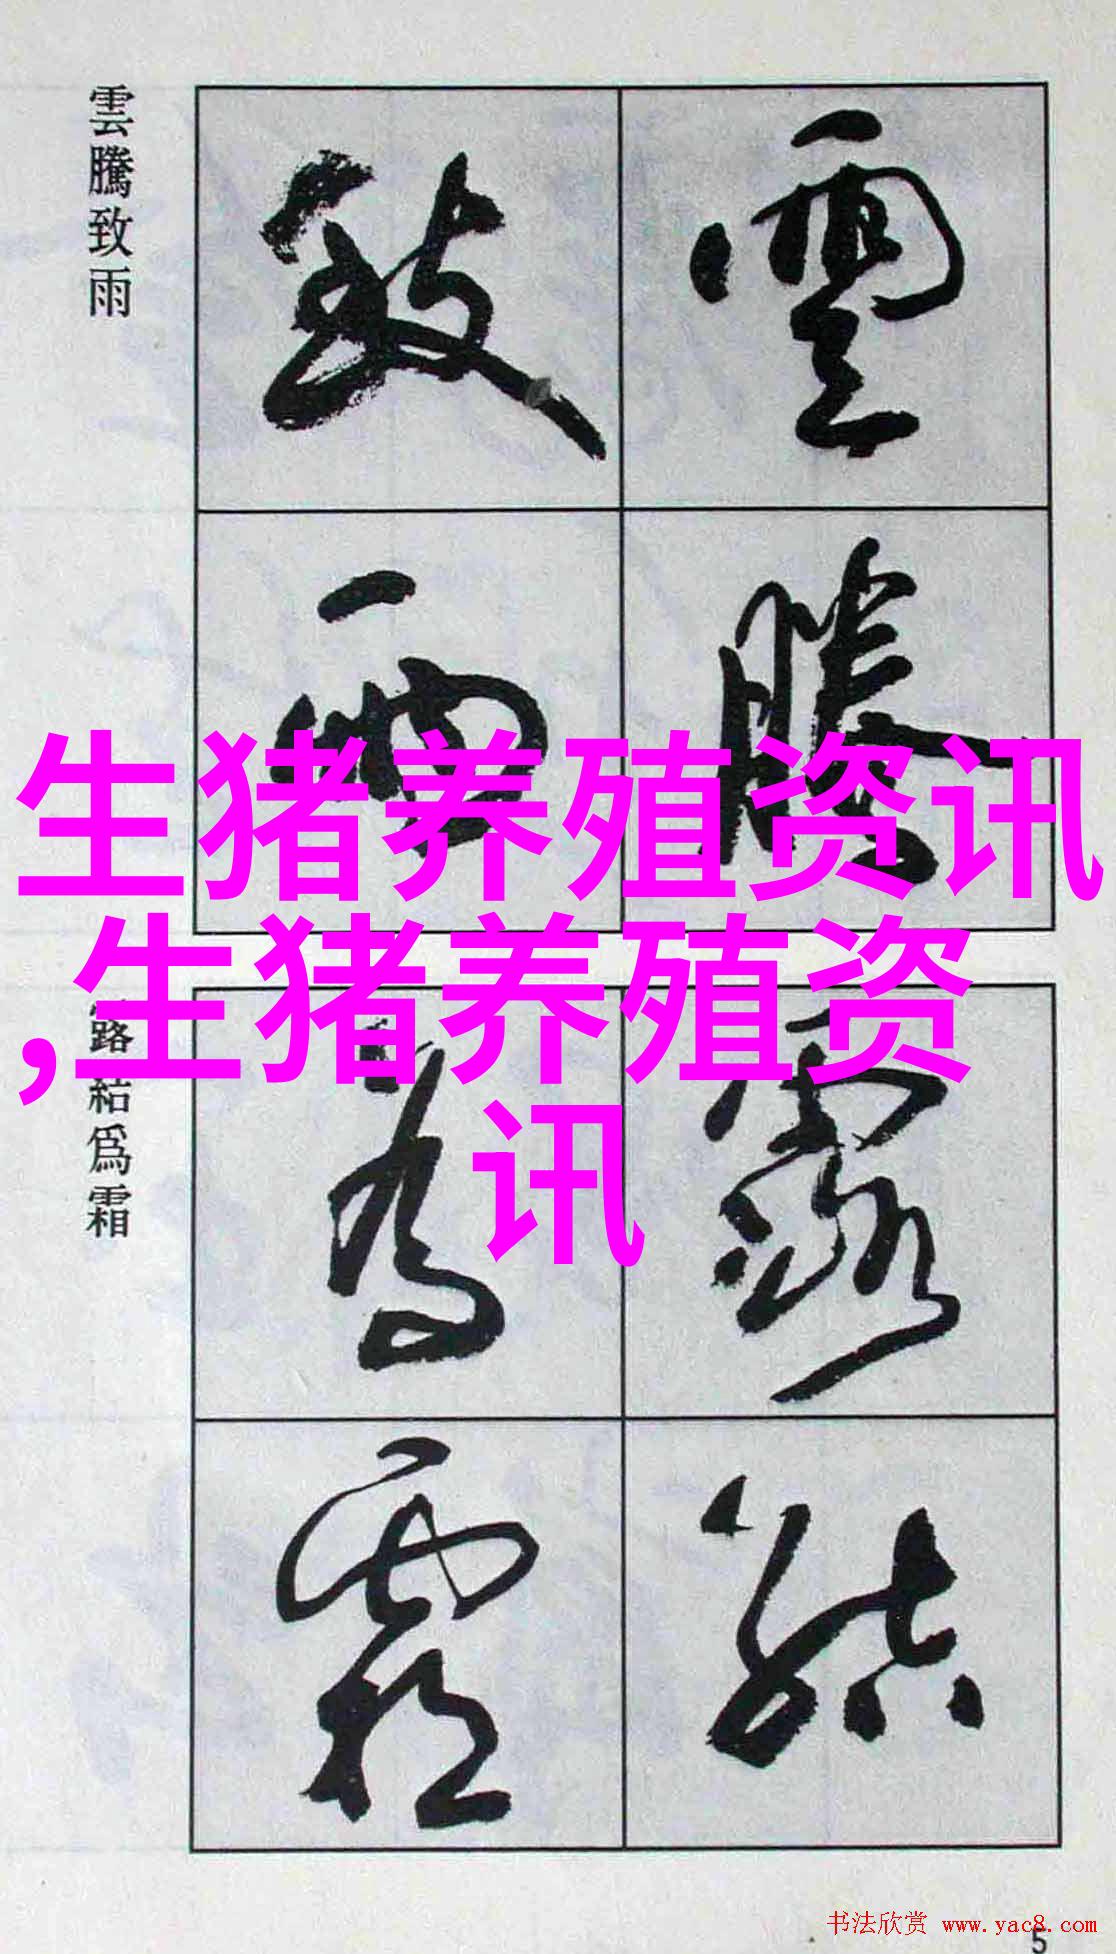 雲騰致雨
雲騰
致雨
生猪养殖资讯
,生猪养殖资
讯
露結爲霜
露結
爲霜
书法欣赏 www.yac8.com
5